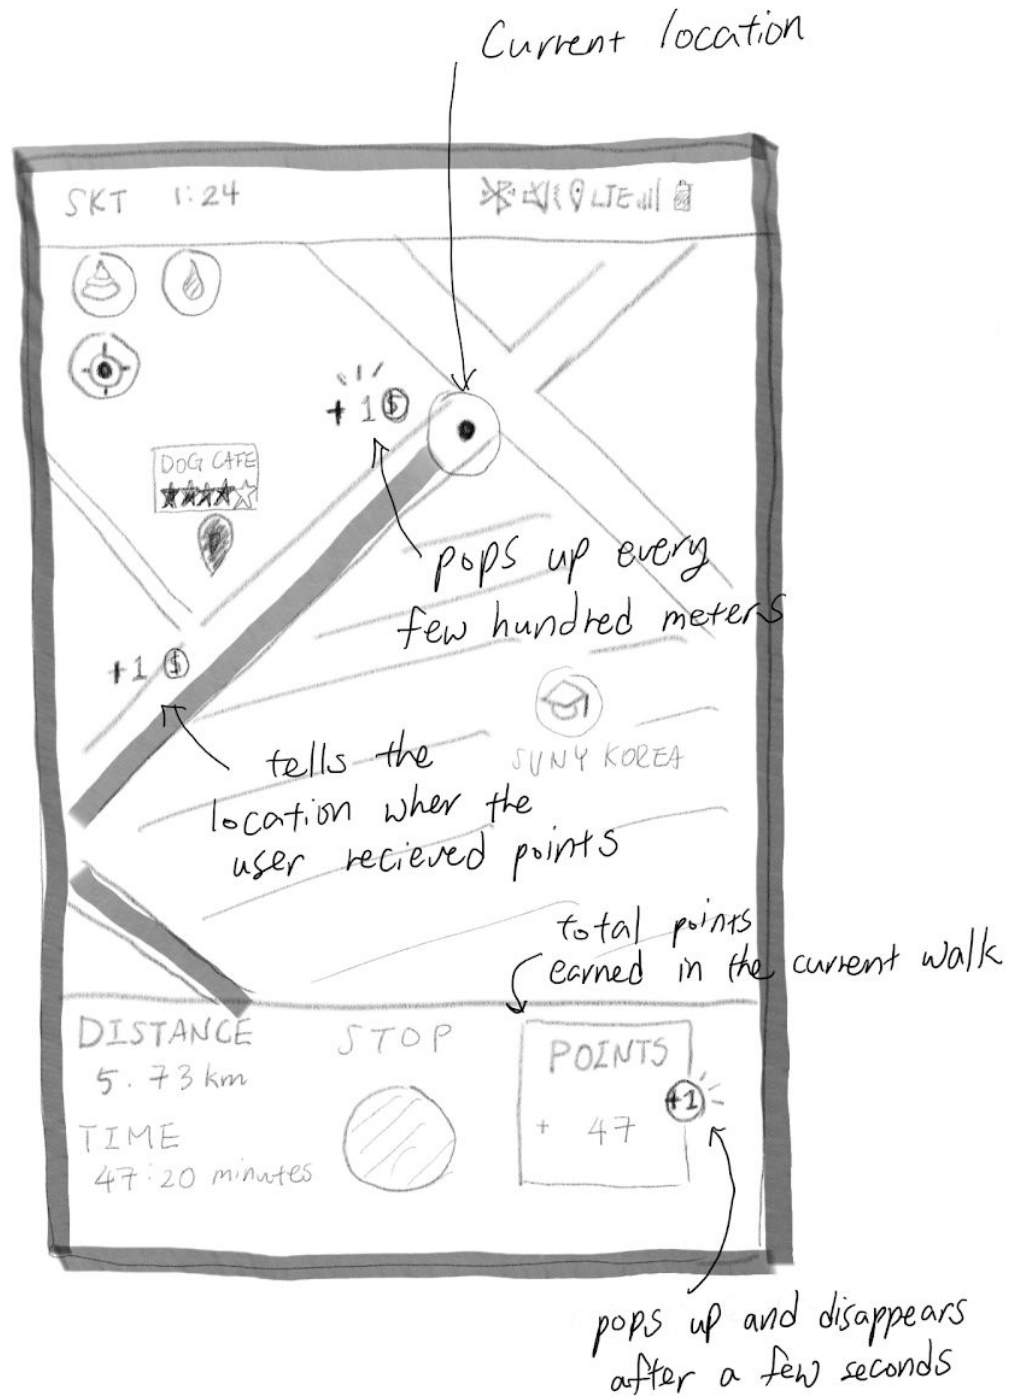 Current location
SKT 1:24
LTE
+1$
DOG CAFE
pops up every
few hundred meters
+1$
SUNY KOREA
tells the
location wher the
user recieved points
total points
earned in the current walk
DISTANCE
5.73 km
TIME
47:20 minutes
STOP
POINTS
+1
+ 47
pops up and disappears
after a few seconds